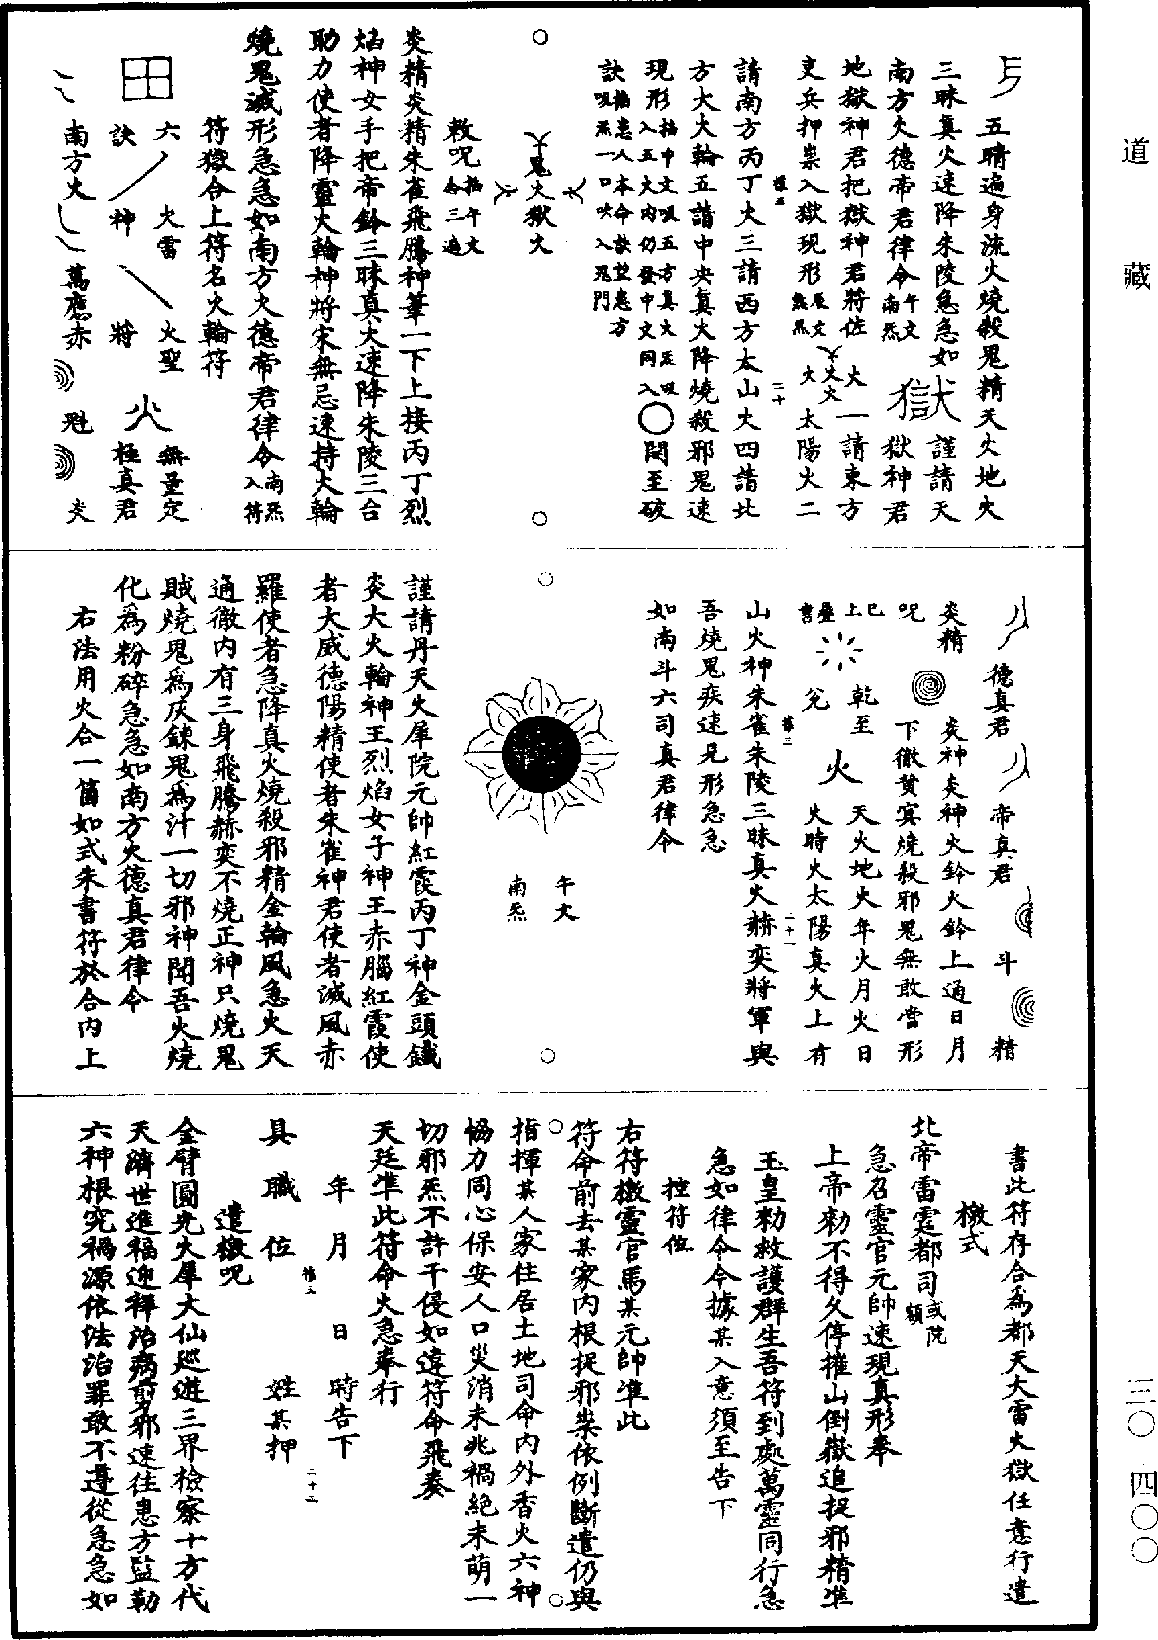 道藏
五晴遍身流火燒殺鬼精天火地火
三昧真火速降朱陵急急如
謹請天
南方火德帝君律令午文南炁
獄
獄神君
地獄神君把獄神君將佐
火
一請東方
吏兵押祟入獄現形
火
太陽火二
請南方丙丁火三請西方太山火四請北
方大火輪五請中央真火降燒殺邪鬼速
現形掐中文吸五方真火炁吸入五火內仍發中文同入
閉至破
訣掐患人本命訣望患方吸炁一口吹入鬼門
鬼火獄火
敕呪掐午文念三遍
炎精炎精朱雀飛騰神筆一下上接丙丁烈
焰神女手把帝鈴三昧真火速降朱陵三台
助力使者降靈火輪神將宋無忌速持火輪
燒鬼滅形急急如南方火德帝君律令南炁入符
符獄令上符名火輪符
六
火雷
火聖
無量定
訣
神
將
火
極真君
南方火
萬應赤
魁
炎
德真君
帝真君
斗
精
炎精
炎神炎神火鈴火鈴上通日月
呪
下徹黄㝠燒殺邪鬼無敢當形
巳上疊書
乾至兌
火
天火地火年火月火日
火時火太陽真火上有
山火神朱雀朱陵三昧真火赫奕將軍與
吾燒鬼疾速見形急急
如南斗六司真君律令
午文
南炁
謹請丹天火犀院元帥紅霞丙丁神金頭鐵
炎大火輪神王烈焰女子神王赤腦紅霞使
者大威德陽精使者朱雀神君使者滅風赤
羅使者急降真火燒殺邪精金輪風急火天
通徹内有三身飛騰赫奕不燒正神只燒鬼
賊燒鬼爲灰鍊鬼爲汁一切邪神聞吾火燒
化爲粉碎急急如南方火德真君律令
右法用火合一箇如式朱書符於合内上
書此符存合爲都天大雷火獄任意行遣
檄式
北帝雷霆都司或院額
急召靈官元帥速現真形奉
上帝勑不得久停摧山倒嶽追捉邪精準
玉皇勑救護群生吾符到處萬靈同行急
急如律令今據某入意須至告下
控符位
右符檄靈官馬某元帥準此
符命前去某家内根捉邪祟依例斷遣仍與
指揮某人家住居土地司命内外香火六神
恊力同心保安人口災消未兆禍絶未萌一
切邪炁不許干侵如違符命飛奏
天廷準此符命火急奉行
年月日時告下
具職位姓某押
遣檄呪
金臂圓光火犀大仙巡遊三界檢察十方代
天濟世進福迎祥治病剪邪速往患方監勒
六神根究禍源依法治罪敢不遵從急急如
三〇
四〇〇